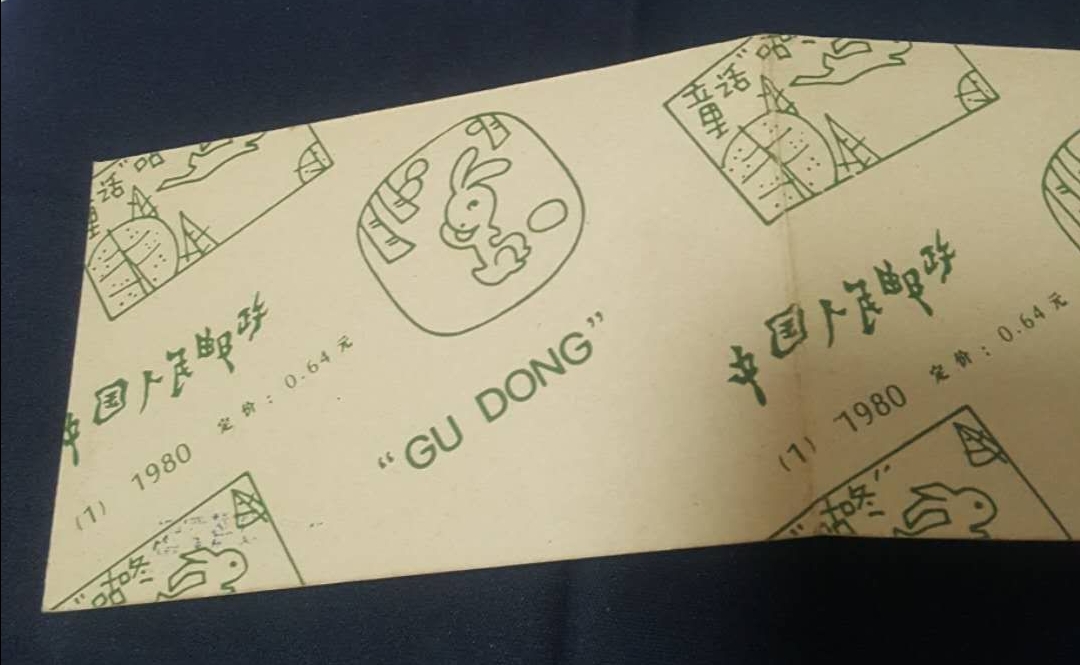 童话"咕
童话"咕
中国人民邮政
定价：0.64元
(1) 1980
"GU DONG"
中国人民邮政
定价：0.64元
(1) 1980
"咕咚
"咕咚"